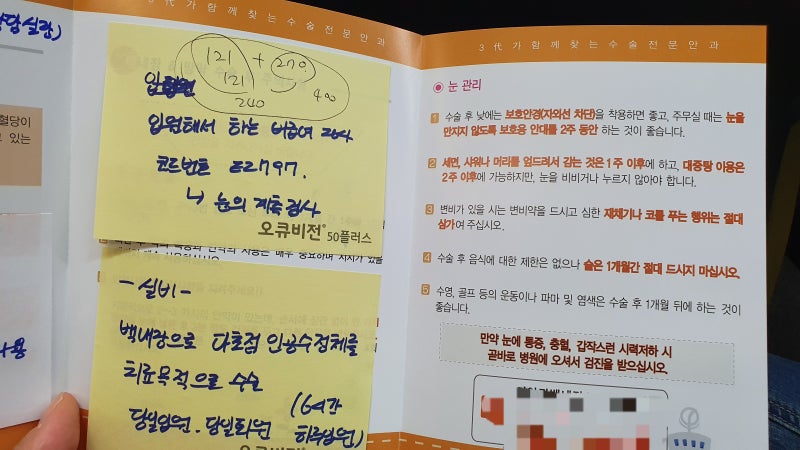 담실장)
혈당이
고 있는
사용
3 대 가 함 께 찾 는 수 술 전 문 안 과
121 + 270
121
240
400
입원해서 하는 비급여 검사
코드번호 EZ797.
↳ 눈의 계측검사
오큐비전® 50플러스
-실비-
백내장으로 다초점 인공수정체를
치료목적으로 수술
(6시간
당일입원. 당일퇴원 하루입원)
오큐비전
3 대 가 함 께 찾 는 수 술 전 문 안 과
◉ 눈 관리
1 수술 후 낮에는 보호안경(자외선 차단)을 착용하면 좋고, 주무실 때는 눈을
만지지 않도록 보호용 안대를 2주 동안 하는 것이 좋습니다.
2 세면, 샤워나 머리를 엎드려서 감는 것은 1주 이후에 하고, 대중탕 이용은
2주 이후에 가능하지만, 눈을 비비거나 누르지 않아야 합니다.
3 변비가 있을 시는 변비약을 드시고 심한 재채기나 코를 푸는 행위는 절대
삼가여 주십시오.
4 수술 후 음식에 대한 제한은 없으나 술은 1개월간 절대 드시지 마십시오.
5 수영, 골프 등의 운동이나 파마 및 염색은 수술 후 1개월 뒤에 하는 것이
좋습니다.
만약 눈에 통증, 충혈, 갑작스런 시력저하 시
곧바로 병원에 오셔서 검진을 받으십시오.